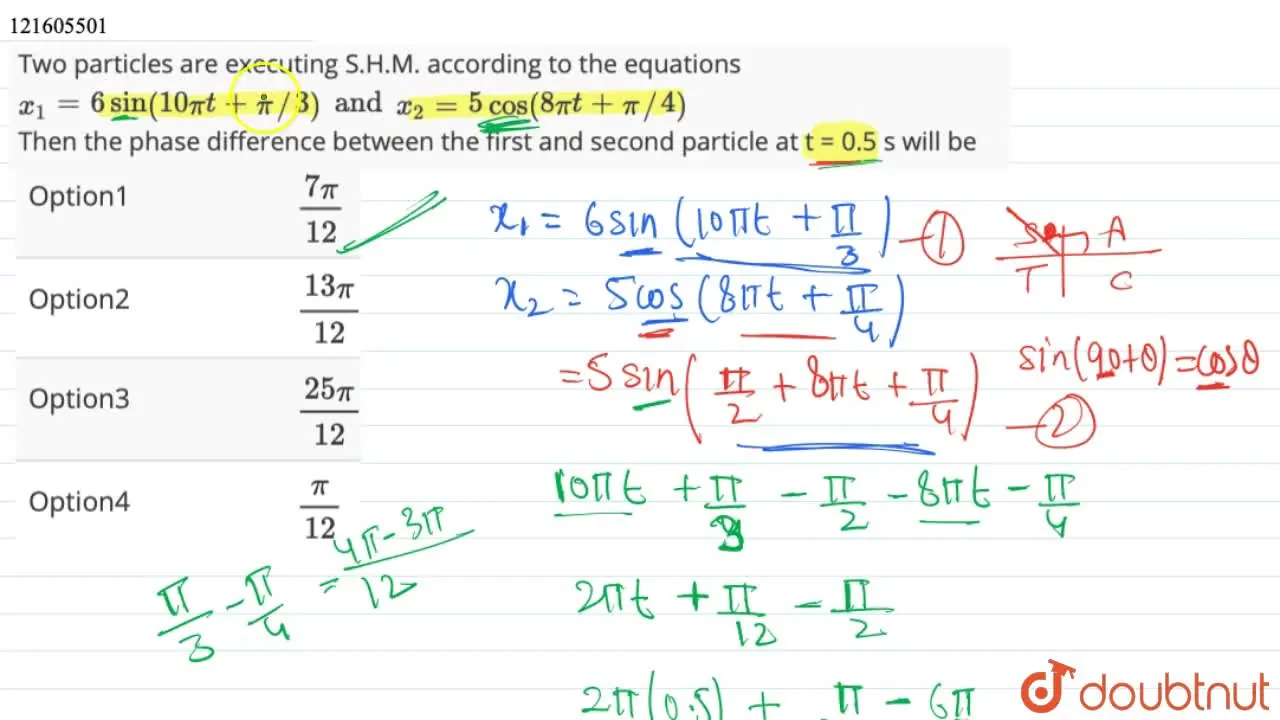 121605501
Two particles are executing S.H.M. according to the equations
x₁ = 6 sin(10πt + π/3) and x₂ = 5 cos(8πt + π/4)
Then the phase difference between the first and second particle at t = 0.5 s will be
Option1 7π/12
Option2 13π/12
Option3 25π/12
Option4 π/12
x₁ = 6 sin (10πt + π/3) —①
A
T C
x₂ = 5 cos (8πt + π/4)
= 5 sin (π/2 + 8πt + π/4) —②
sin(90+θ) = cosθ
10πt + π/3 - π/2 - 8πt - π/4
π/3 - π/4 = 4π-3π/12
2πt + π/12 - π/2
2π(0.5) + π - 6π
doubtnut